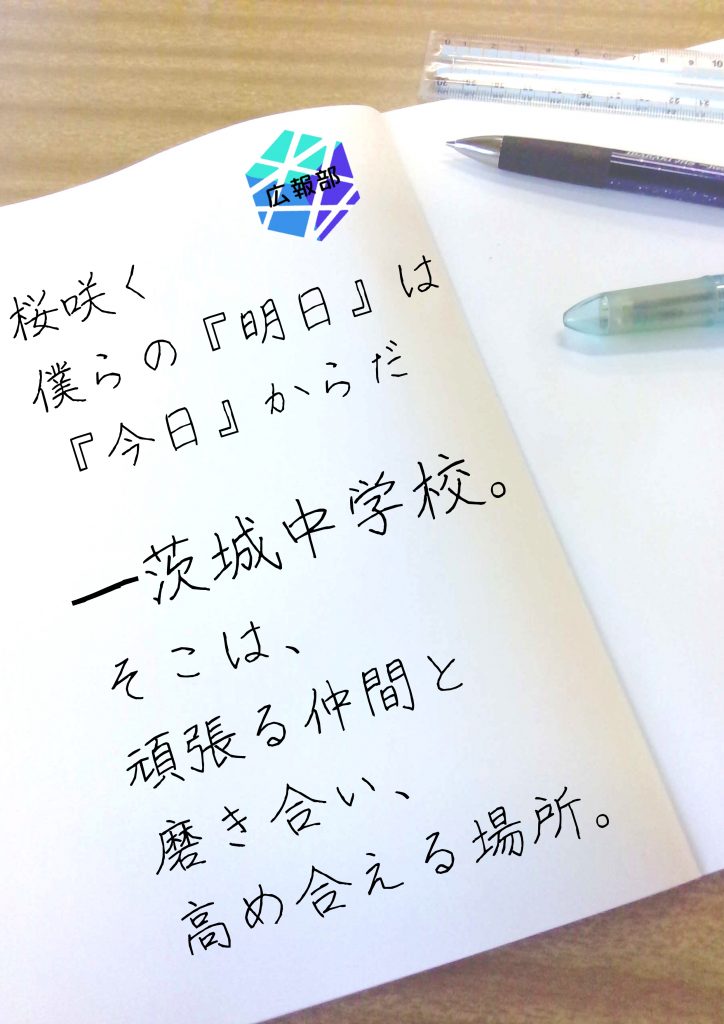 広報部
桜咲く
僕らの『明日』は
『今日』からだ
―茨城中学校。
そこは、
頑張る仲間と
磨き合い、
高め合える場所。